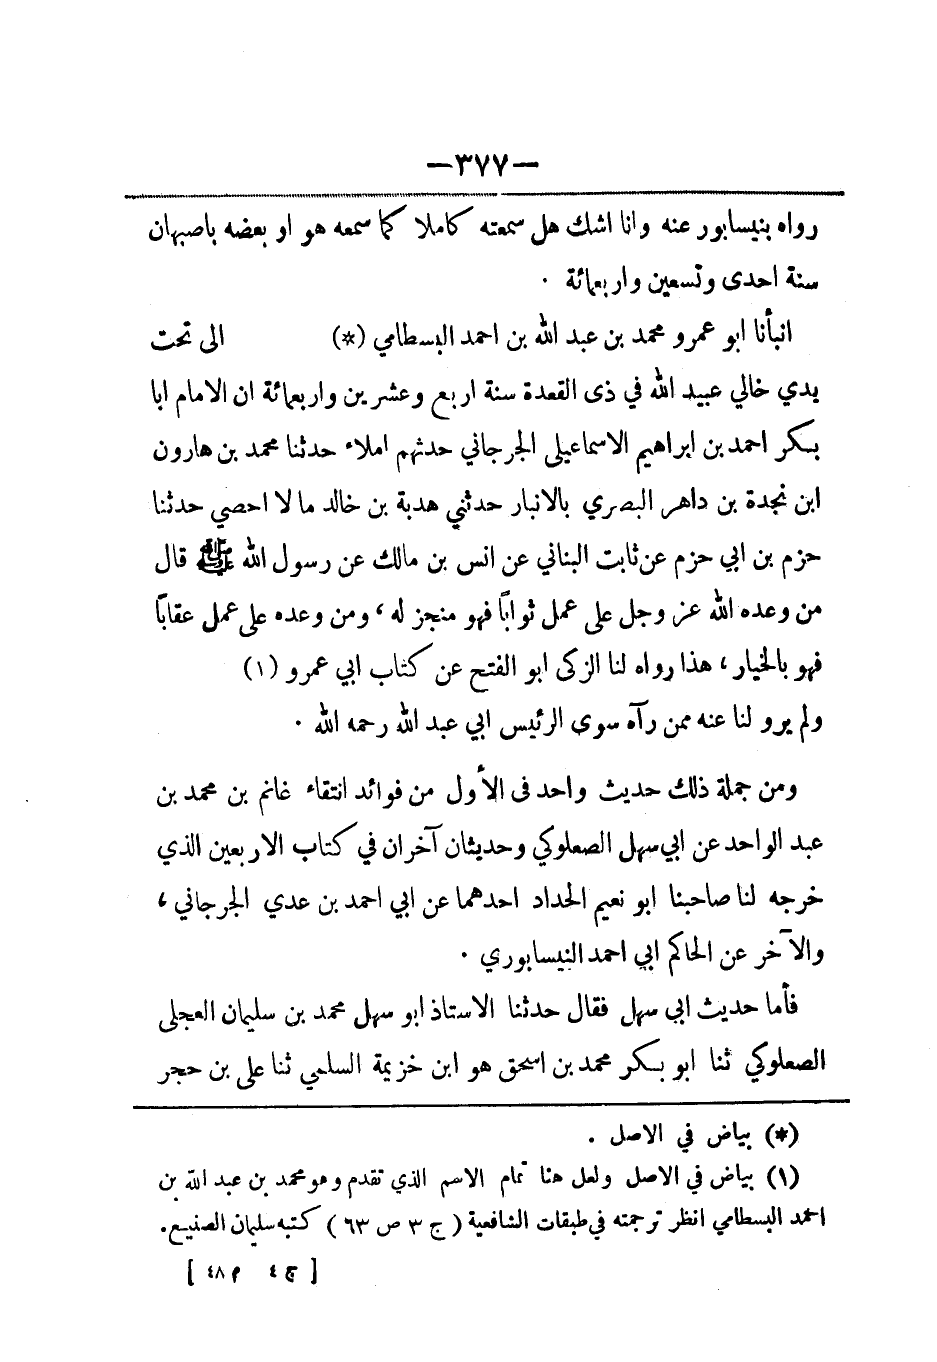 —٣٧٧—
رواه بنيسابور عنه وانا اشك هل سمعته كاملا كما سمعه هو او بعضه باصبهان
سنة احدى وتسعين واربعمائة .
انبأنا ابو عمرو محمد بن عبد الله بن احمد البسطامي (*) الى تحت
يدي خالي عبيد الله في ذى القعدة سنة اربع وعشرين واربعمائة ان الامام ابا
بكر احمد بن ابراهيم الاسماعيلى الجرجاني حدثهم املاء حدثنا محمد بن هارون
ابن نجدة بن داهر البصري بالانبار حدثني هدبة بن خالد ما لا احصي حدثنا
حزم بن ابي حزم عن ثابت البناني عن انس بن مالك عن رسول الله ﷺ قال
من وعده الله عز وجل على عمل ثوابًا فهو منجز له ، ومن وعده على عمل عقابًا
فهو بالخيار ، هذا رواه لنا الزكى ابو الفتح عن كتاب ابي عمرو (١)
ولم يرو لنا عنه ممن رآه سوى الرئيس ابي عبد الله رحمه الله .
ومن جملة ذلك حديث واحد فى الأول من فوائد انتقاء غانم بن محمد بن
عبد الواحد عن ابي سهل الصعلوكي وحديثان آخران في كتاب الاربعين الذي
خرجه لنا صاحبنا ابو نعيم الحداد احدهما عن ابي احمد بن عدي الجرجاني ،
والآخر عن الحاكم ابي احمد النيسابوري .
فأما حديث ابي سهل فقال حدثنا الاستاذ ابو سهل محمد بن سليمان العجلى
الصعلوكي ثنا ابو بكر محمد بن اسحق هو ابن خزيمة السلمي ثنا على بن حجر
(*) بياض في الاصل .
(١) بياض في الاصل ولعل هنا تمام الاسم الذي تقدم وهو محمد بن عبد الله بن
احمد البسطامي انظر ترجمته في طبقات الشافعية ( ج ٣ ص ٦٣ ) كتبه سليمان الصنيع.
[ ج ٤ م ٤٨ ]